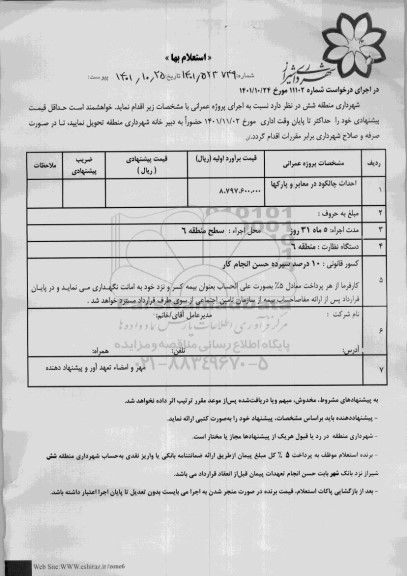 « استعلام بها »
شهرداری شیراز
شماره: ۱۴۰۱/۵۲۳۷۳۹ تاریخ: ۱۴۰۱,۱۰,۲۵ پیوست:
در اجرای درخواست شماره ۱۱۱۰۲ مورخ ۱۴۰۱/۱۰/۲۴
شهرداری منطقه شش در نظر دارد نسبت به اجرای پروژه عمرانی با مشخصات زیر اقدام نماید. خواهشمند است حداقل قیمت
پیشنهادی خود را حداکثر تا پایان وقت اداری مورخ ۱۴۰۱/۱۱/۰۲ حضوراً به دبیر خانه شهرداری منطقه تحویل نمایید، تا در صورت
صرفه و صلاح شهرداری برابر مقررات اقدام گردد.
ردیف مشخصات پروژه عمرانی قیمت برآورد اولیه (ریال) قیمت پیشنهادی ( ریال ) ضریب پیشنهادی ملاحظات
۱ احداث چالکود در معابر و پارکها ۸.۷۹۷.۶۰۰.۰۰۰
۲ مبلغ به حروف :
۳ مدت اجراء: ۵ ماه ۳۱ روز محل اجراء : سطح منطقه ۶
۴ دستگاه نظارت : منطقه ۶
۵ کسور قانونی : ۱۰ درصد سپرده حسن انجام کار
کارفرما از هر پرداخت معادل ۵٪ بصورت علی الحساب بعنوان بیمه کسر و نزد خود به امانت نگهداری می نماید و در پایان
قرارداد پس از ارائه مفاصاحساب بیمه از سازمان تامین اجتماعی از سوی طرف قرارداد مسترد خواهد شد .
۶ نام شرکت : مدیرعامل آقای/خانم:
آدرس: تلفن: همراه:
۷ مهر و امضاء تعهد آور و پیشنهاد دهنده
مرکز فرآوری اطلاعات پارس نماد داده‌ها
پایگاه اطلاع رسانی مناقصه و مزایده
۰۲۱-۸۸۳۴۹۶۷۰-۵
به پیشنهادهای مشروط، مخدوش، مبهم ویا دریافت‌شده پس‌از موعد مقرر ترتیب اثر داده نخواهد شد.
- پیشنهاددهنده باید براساس مشخصات، پیشنهاد خود را به‌صورت کتبی ارائه نماید.
- شهرداری منطقه در رد یا قبول هریک از پیشنهادها مجاز یا مختار است.
- برنده استعلام موظف به پرداخت ۵ ٪ کل مبلغ پیمان ازطریق ارائه ضمانتنامه بانکی یا واریز نقدی به‌حساب شهرداری منطقه شش
شیراز نزد بانک شهر بابت حسن انجام تعهدات پیمان قبل‌از انعقاد قرارداد می باشد.
- بعد از بازگشایی پاکات استعلام، قیمت برنده در صورت منجر شدن به اجرا می بایست بدون تعدیل تا پایان اجرا اعتبار داشته باشد.
Web Site:WWW.eshiraz.ir/